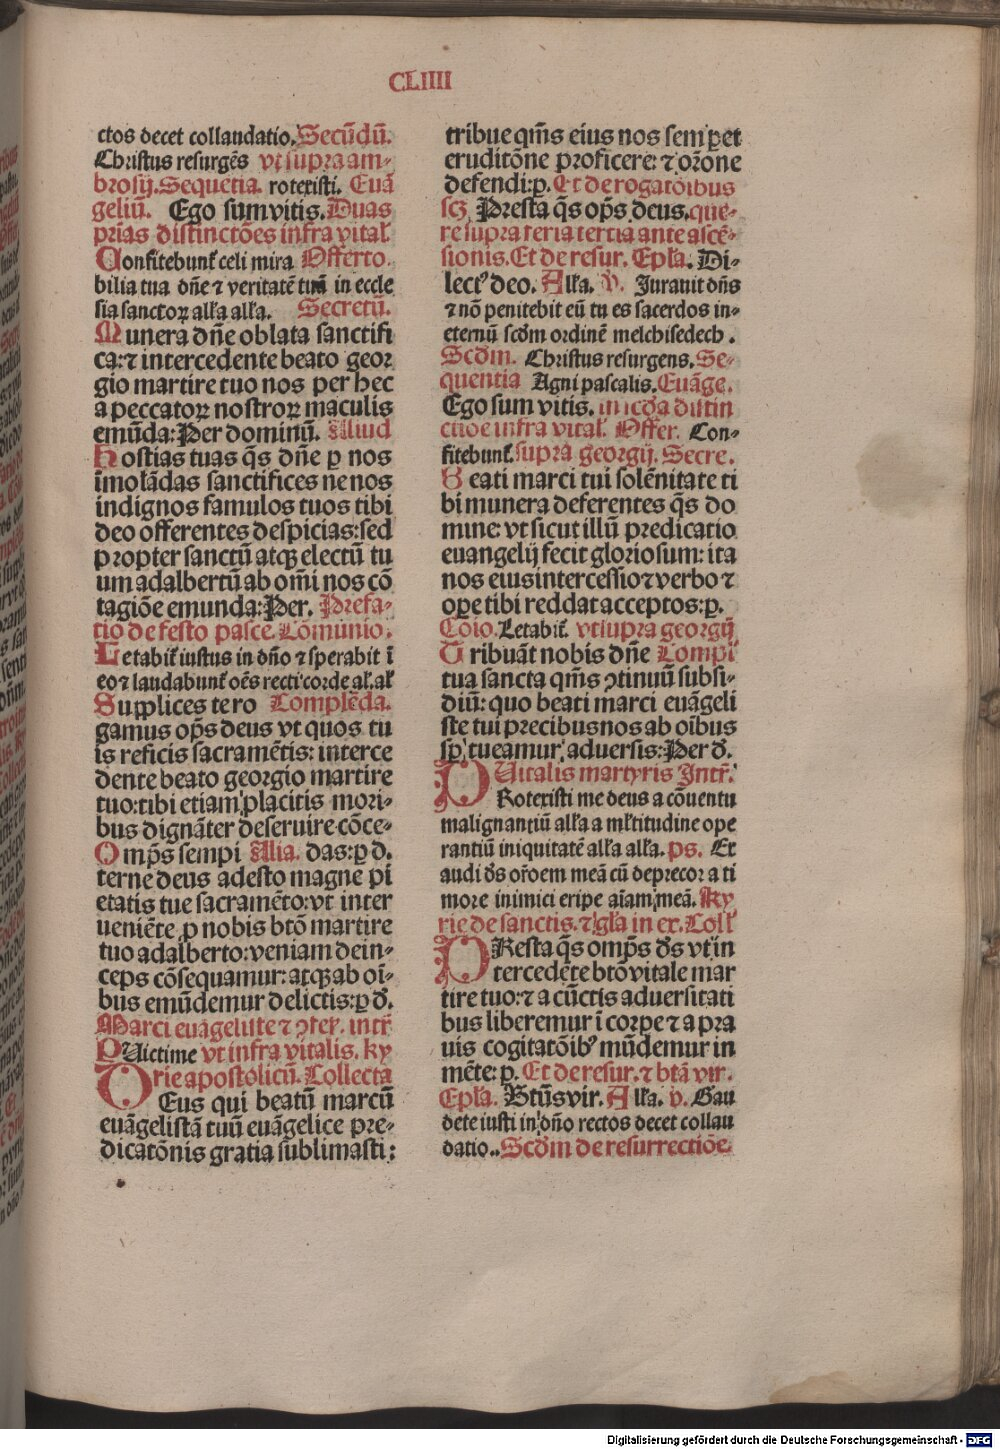 CLIIII
ctos decet collaudatio. Secūdū.
Christus resurgēs vt supra am-
brosij. Sequētia. rotexisti. Euā
geliū. Ego sum vitis. Duas
prīas distinctōes infra vital̄
Confitebunt̄ celi mira Offerto.
bilia tua dn̄e ⁊ veritatē tuā in eccle
sia sanctoꝝ all̄a all̄a. Secretū.
Munera dn̄e oblata sanctifi
ca: ⁊ intercedente beato geor
gio martire tuo nos per hec
a peccatoꝝ nostroꝝ maculis
emūda: Per dominū. Aliud
Hostias tuas q̄s dn̄e ꝑ nos
īmolādas sanctifices ne nos
indignos famulos tuos tibi
deo offerentes despicias: sed
propter sanctū atqꝫ electū tu
um adalbertū ab om̄i nos cō
tagiōe emunda: Per. Prefa-
tio de festo pasce. Cōmunio.
Letabit̄ iustus in dn̄o ⁊ sperabit ī
eo ⁊ laudabunt̄ oēs recti corde al̄. al̄
Supplices te ro Complēda.
gamus op̄s deus vt quos tu
is reficis sacramētis: interce
dente beato georgio martire
tuo: tibi etiam placitis mori-
bus dignāter deseruire cōce-
Omp̄s sempi Alia. das: ꝑ d̄.
terne deus adesto magne pi
etatis tue sacramēto: vt inter
ueniēte ꝓ nobis btō martire
tuo adalberto: veniam dein-
ceps cōsequamur: atqꝫ ab oī-
bus emūdemur delictis: ꝑ d̄.
Marci euāgeliste ⁊ ꝯfeſ. intr̄
PUictime vt infra vitalis. ky
rie apostolicū. Collecta
DEus qui beatū marcū
euāgelistā tuū euāgelice pre-
dicatōnis gratia sublimasti:
tribue q̄m̄s eius nos semꝑ et
eruditōne proficere: ⁊ or̄one
defendi: ꝑ. Et de rogatōibus
scꝫ Presta q̄s op̄s deus. que-
re supra feria tertia ante ascē-
sionis. Et de resur. Epl̄a. Di-
lectꝰ deo. All̄a. v̄. Jurauit dn̄s
⁊ nō penitebit eū tu es sacerdos in-
eternū scd̄m ordinē melchisedech.
Scd̄m. Christus resurgens. Se-
quentia Agni pascalis. Euāge.
Ego sum vitis. in scd̄a distin
ctiōe infra vital̄. Offer. Con-
fitebunt̄. supra georgij. Secre.
Beati marci tui solēnitate ti
bi munera deferentes q̄s do
mine: vt sicut illū predicatio
euangelij fecit gloriosum: ita
nos eius intercessio ⁊ verbo ⁊
oꝑe tibi reddat acceptos: ꝑ.
Cōio. Letabit̄. vt supra georgij
Tribuāt nobis dn̄e Compl̄
tua sancta q̄m̄s ꝯtinuū subsi-
diū: quo beati marci euāgeli
ste tui precibus nos ab oībus
sp̄ tueamur aduersis: Per d̄.
Uitalis martyris Intr̄.
PRotexisti me deus a cōuentu
malignantiū all̄a a ml̄titudine ope
rantiū iniquitatē all̄a all̄a. ps. Ex
audi d̄s or̄oem meā cū deprecor a ti
more inimici eripe aīam meā. Ky
rie de sanctis. ⁊ gl̄a in ex. Coll̄
PResta q̄s omp̄s d̄s vt in
tercedēte btō vitale mar
tire tuo: ⁊ a cūctis aduersitati
bus liberemur ī corꝑe ⁊ a pra
uis cogitatōibꝰ mūdemur in
mēte: ꝑ. Et de resur. ⁊ btā vir.
Epl̄a. Btūs vir. All̄a. v̄. Gau
dete iusti in dn̄o rectos decet collau
datio.. Scd̄m de resurrectiōe
Digitalisierung gefördert durch die Deutsche Forschungsgemeinschaft - DFG